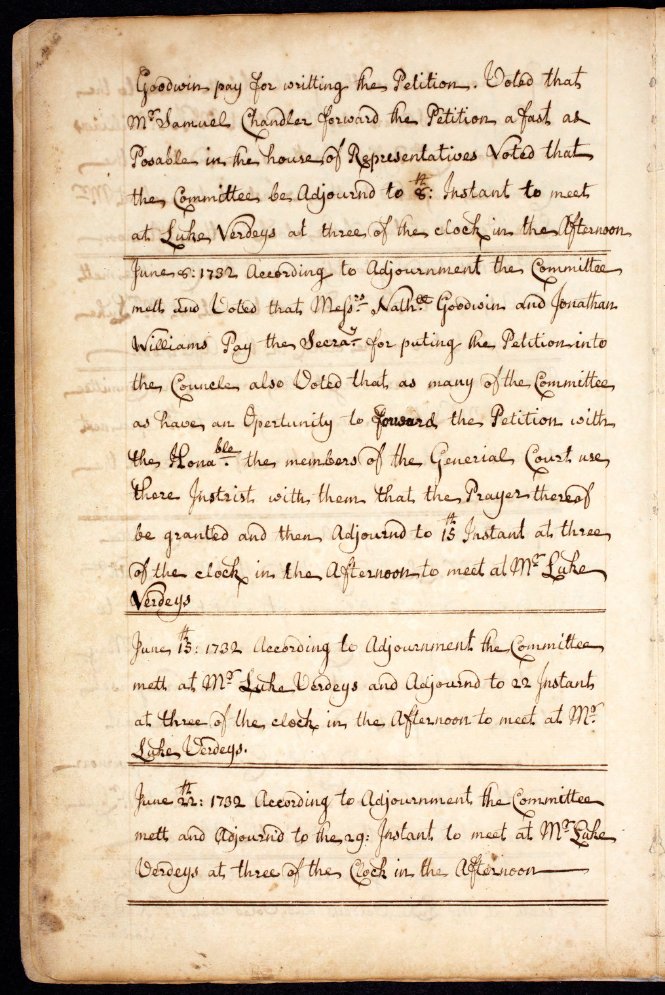 Goodwin pay for writting the Petition. Voted that
Mr. Samuel Chandler forward the Petition a fast as
Posable in the house of Representatives Voted that
the Committee be Adjournd to 8th: Instant to meet
at Luke Verdeys at three of the clock in the Afternoon
June 8: 1732 According to Adjournment the Committee
mett and Voted that Messrs. Nathll Goodwin and Jonathan
Williams Pay the Secray. for puting the Petition into
the Councle also Voted that as many of the Committee
as have an Opertunity to forward the Petition with
the Honable. the members of the Generial Court use
there Instrist with them that the Prayer thereof
be granted and then Adjournd to 15th Instant at three
of the clock in the Afternoon to meet at Mr. Luke
Verdeys
June 15th: 1732 According to Adjournment the Committee
mett at Mr. Luke Verdeys and Adjournd to 22 Instant
at three of the clock in the Afternoon to meet at Mr.
Luke Verdeys.
June 22th: 1732 According to Adjournment the Committee
mett and Adjournd to the 29: Instant to meet at Mr. Luke
Verdeys at three of the Clock in the Afternoon